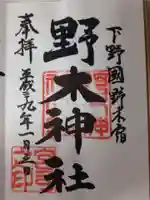 下野國野木宿
野木神社
奉拝
平成二九年一月二日